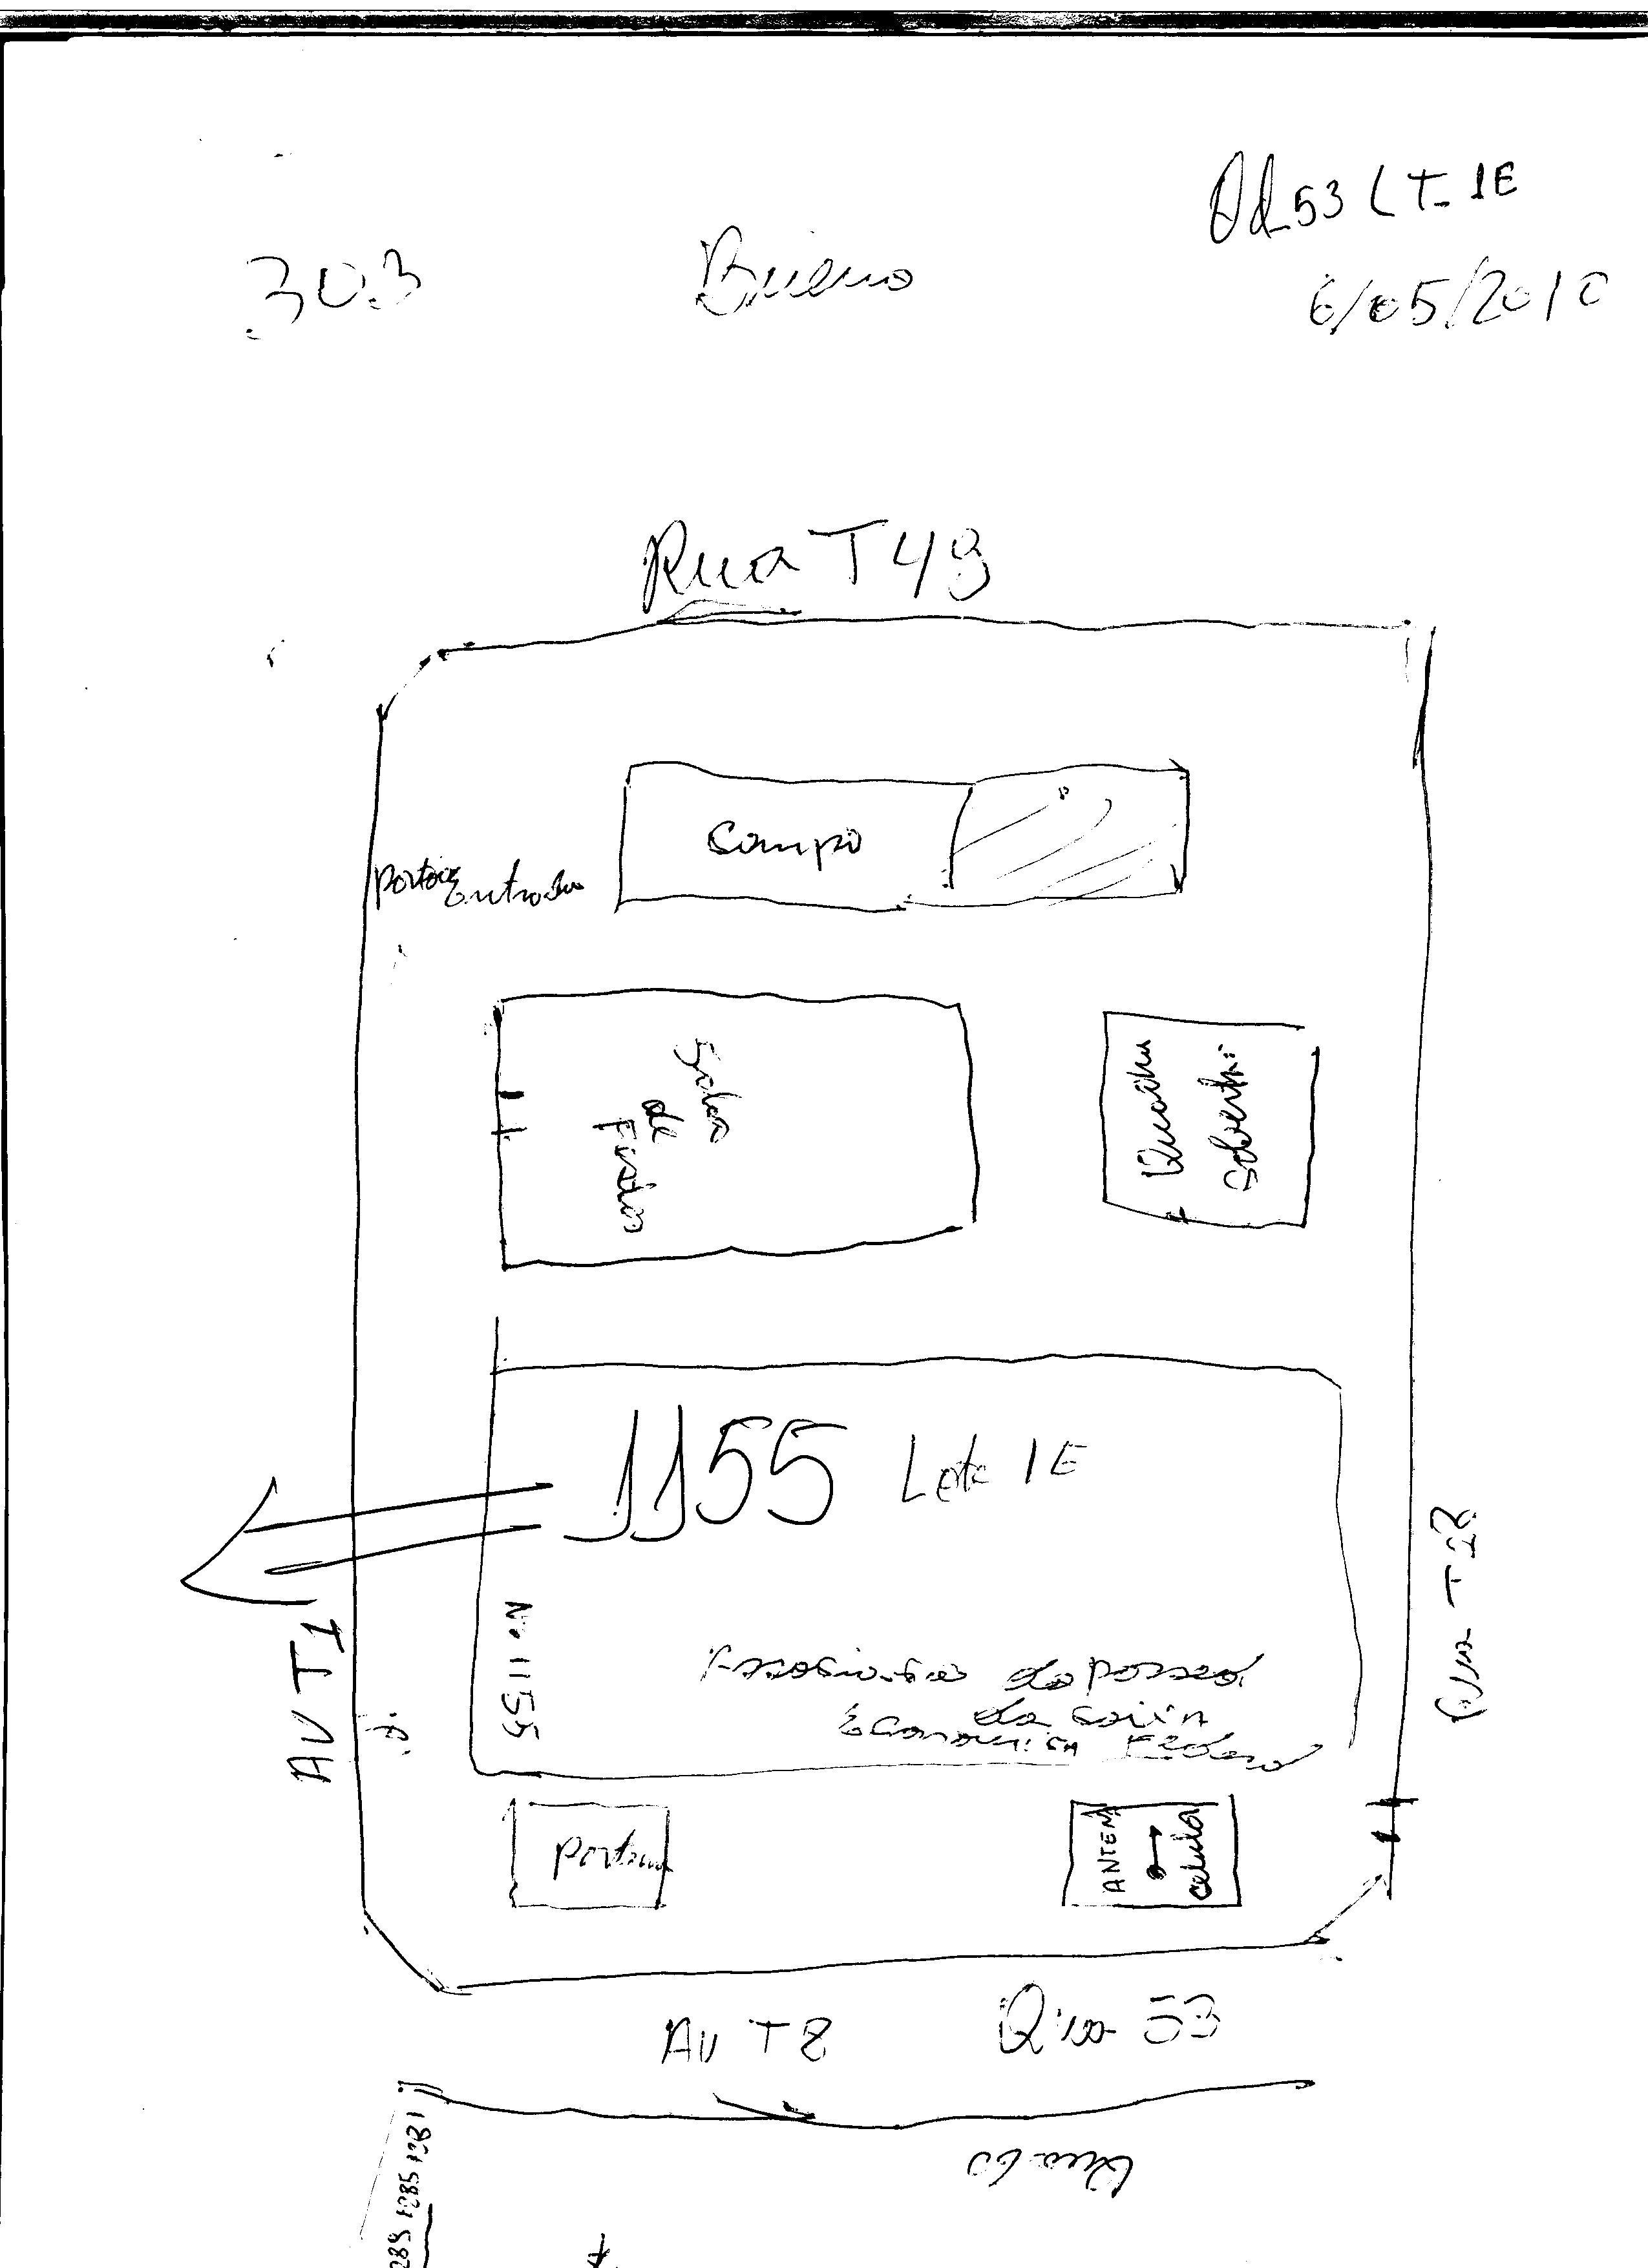 Qd 53 LT-1E
303 Bueno 6/05/2010
Rua T49
Campo
portão Entrada
Salão
de
Festas
Quadra
Coberta
1155 Lote 1E
Nº 1155
AV T1
Rua T28
da Caixa
Economica Federal
portaria
ANTENA
Celular
AV T8 Qua 53
1281
1285